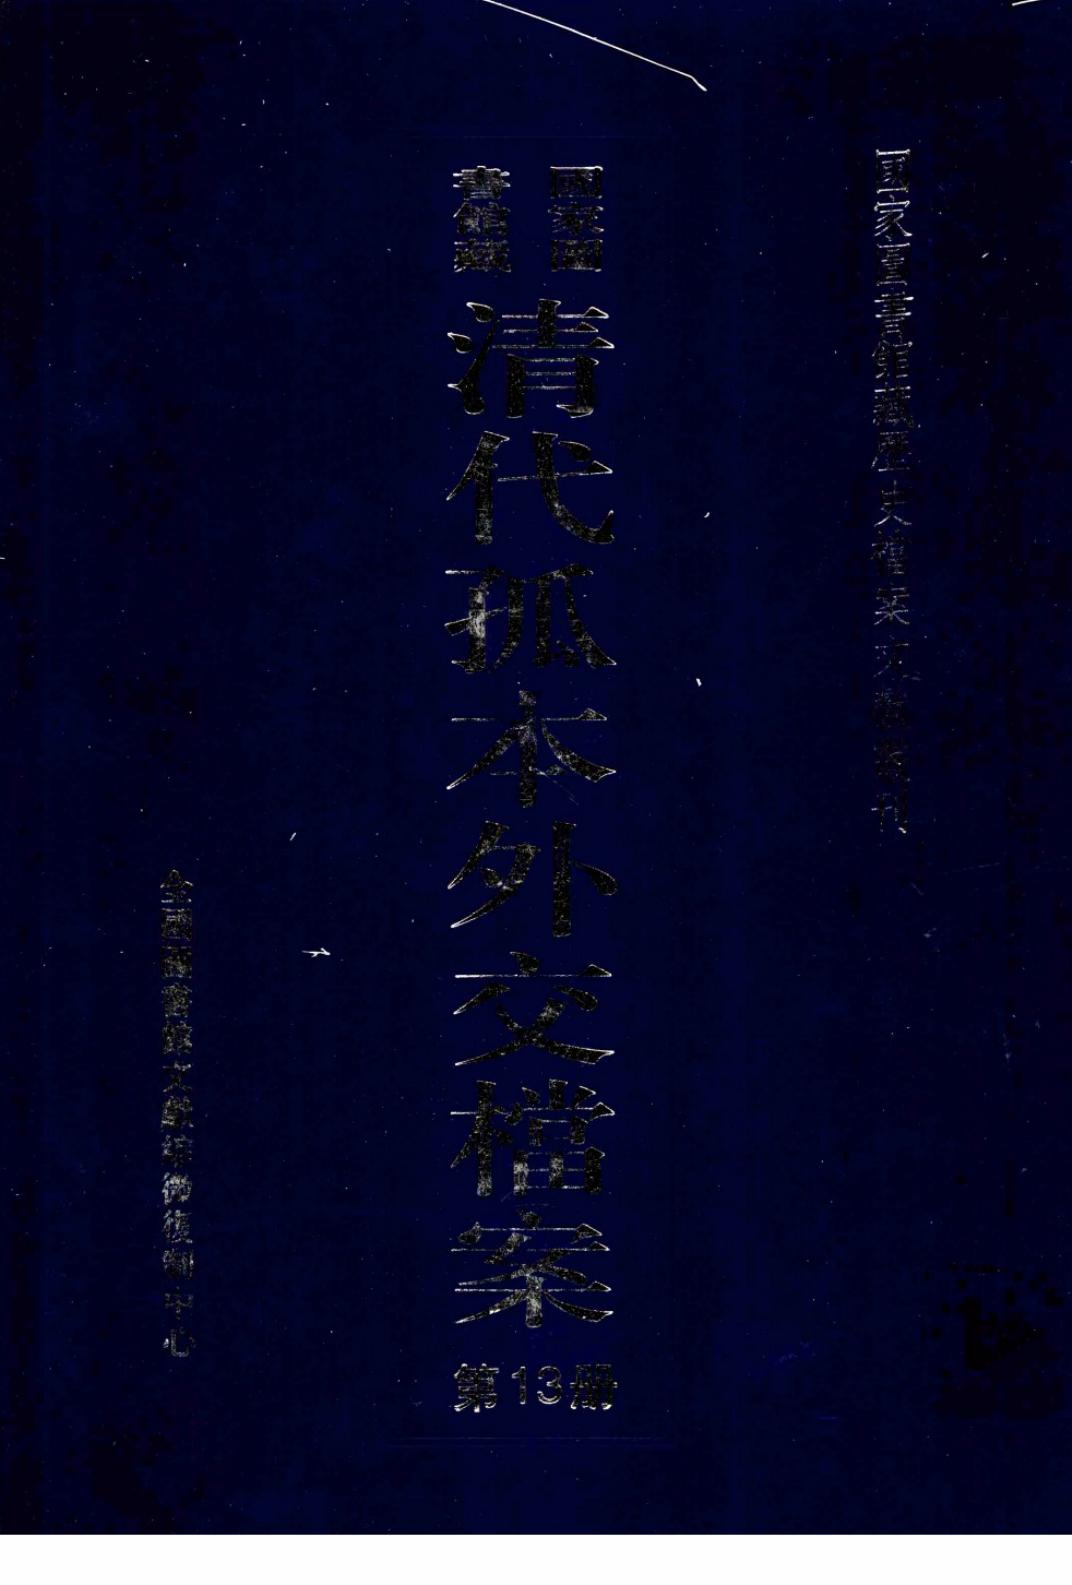 國家圖書館藏歷史檔案文獻叢刊
國家圖
書館藏
清代孤本外交檔案
第13册
全國圖書館文獻縮微復制中心